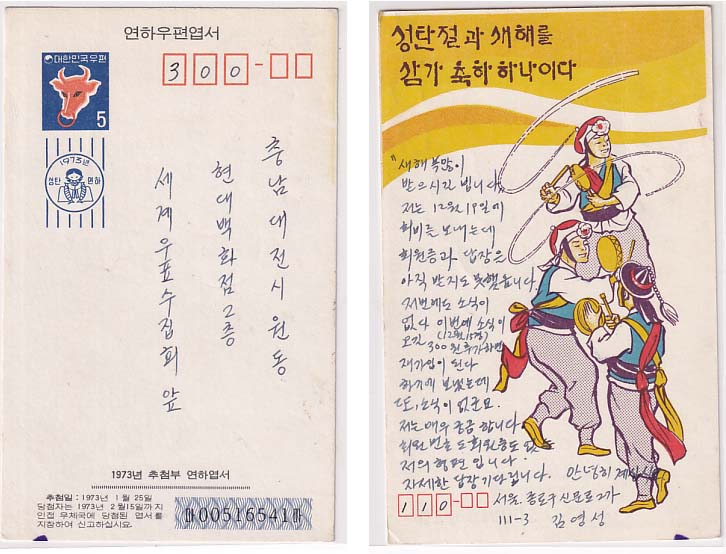 연하우편엽서
대한민국우편
300-
5
1973년
성탄 연하
충남 대전시 원동
현대백화점 2층
세계우표수집회 앞
1973년 추첨부 연하엽서
추첨일 : 1973년 1월 25일
당첨자는 1973년 2월15일까지
인접 우체국에 당첨된 엽서를
지참하여 신고하십시요.
00516541
성탄절과 새해를
삼가 축하 하나이다
"새해 복많이
받으시간 빕니다
저는 12월 19일에
회비를 보내는데
회원증과 답장은
아직 받지도 못했읍니다
저번에도 소식이
없다 이번에 소식이
오긴 (12월15일)
300원 추가하면
재가입이 된다
하기에 보냈는데
또, 소식이 없군요.
저는 매우 궁금합니다
회원번호도 회원증도 없는
저의 형편입니다.
자세한 답장 기다립니다. 안녕히 계십시요
110- 서울. 종로구 신문로 2가
111-3 김영성